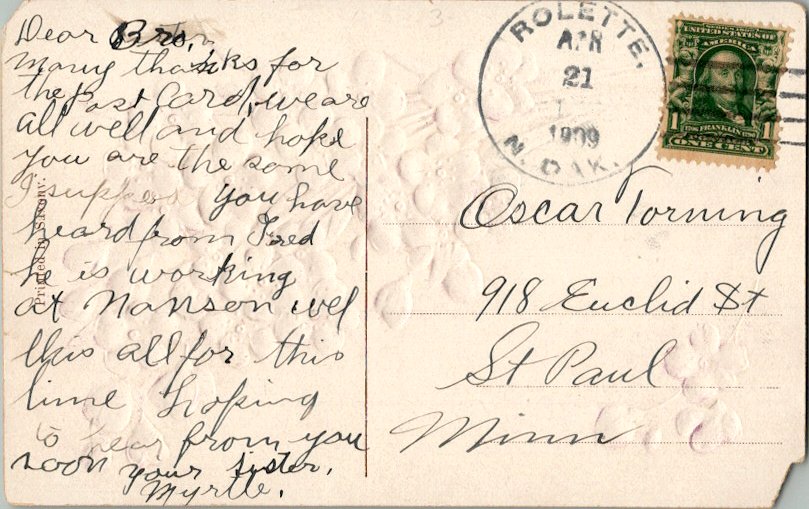 Dear Bro,
Many thanks for
the Post Card, we are
all well and hope
you are the same
I suppose you have
heard from Fred
he is working
at Nanson wel
this all for this
time hoping
to hear from you
soon your sister,
Myrtle.
Printed in Saxony.
ROLETTE,
APR
21
1909
N. DAK.
UNITED STATES OF
AMERICA
1 1706 FRANKLIN 1790 1
ONE CENT
Oscar Torning
918 Euclid St
St Paul
Minn